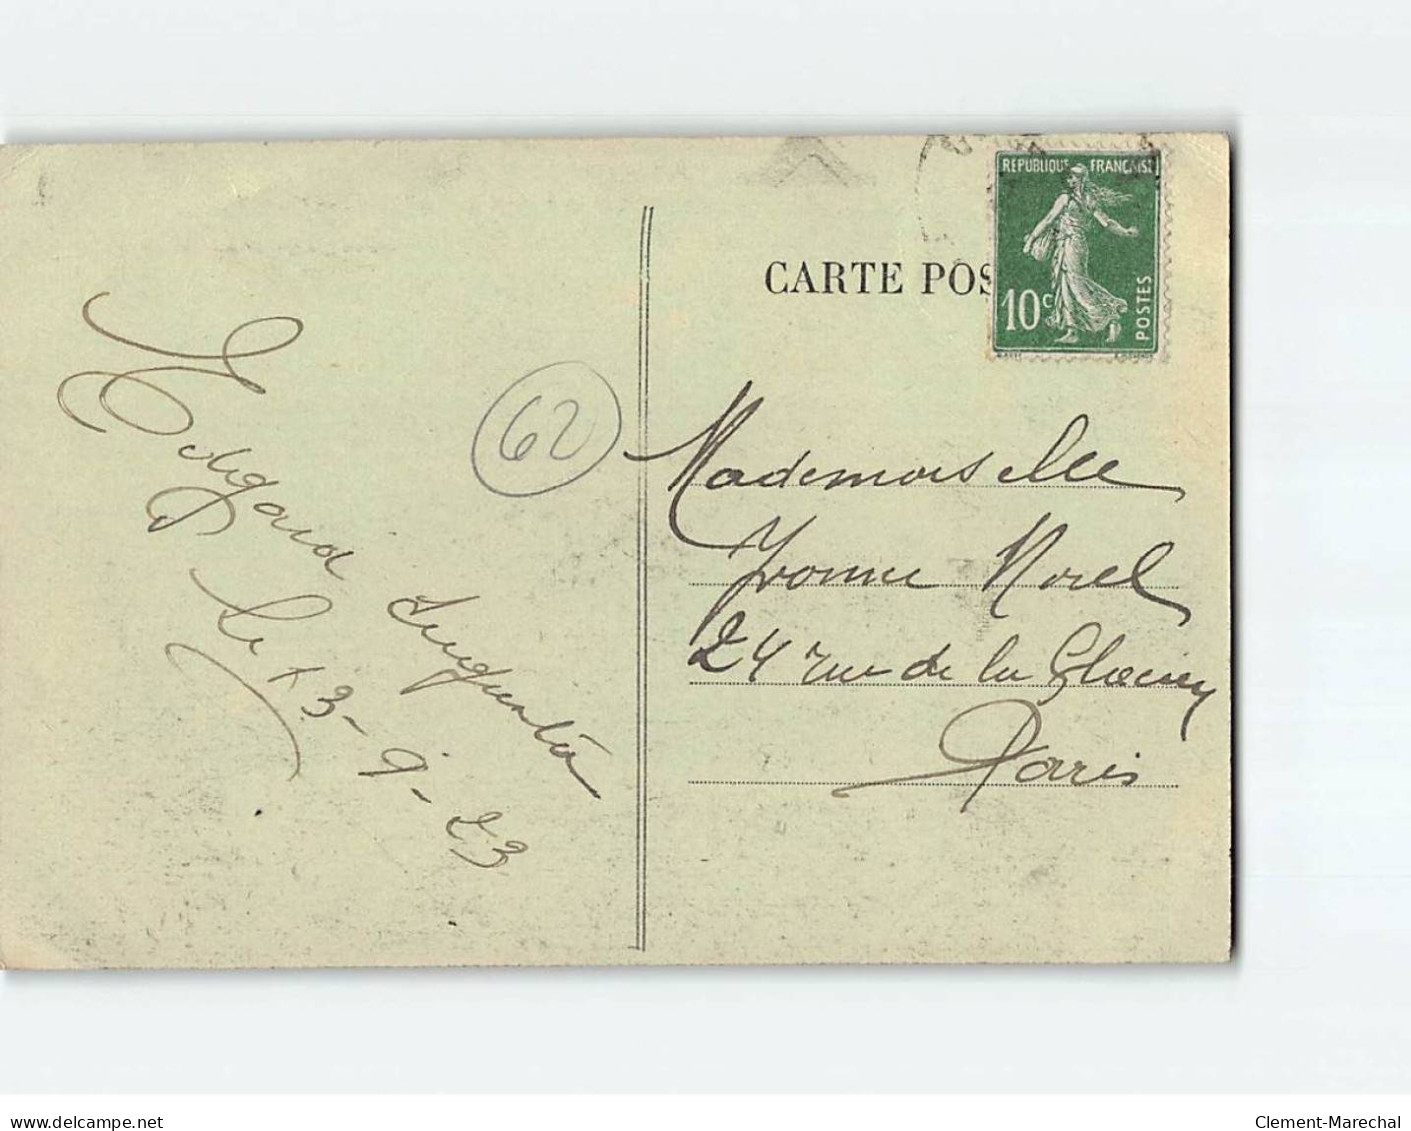 REPUBLIQUE FRANÇAISE
10c
POSTES
CARTE POS
62
Edgard
Le 13-9-23
Mademoiselle
Yvonne Morel
24 rue de la Glacière
Paris
www.delcampe.net
Clement-Marechal